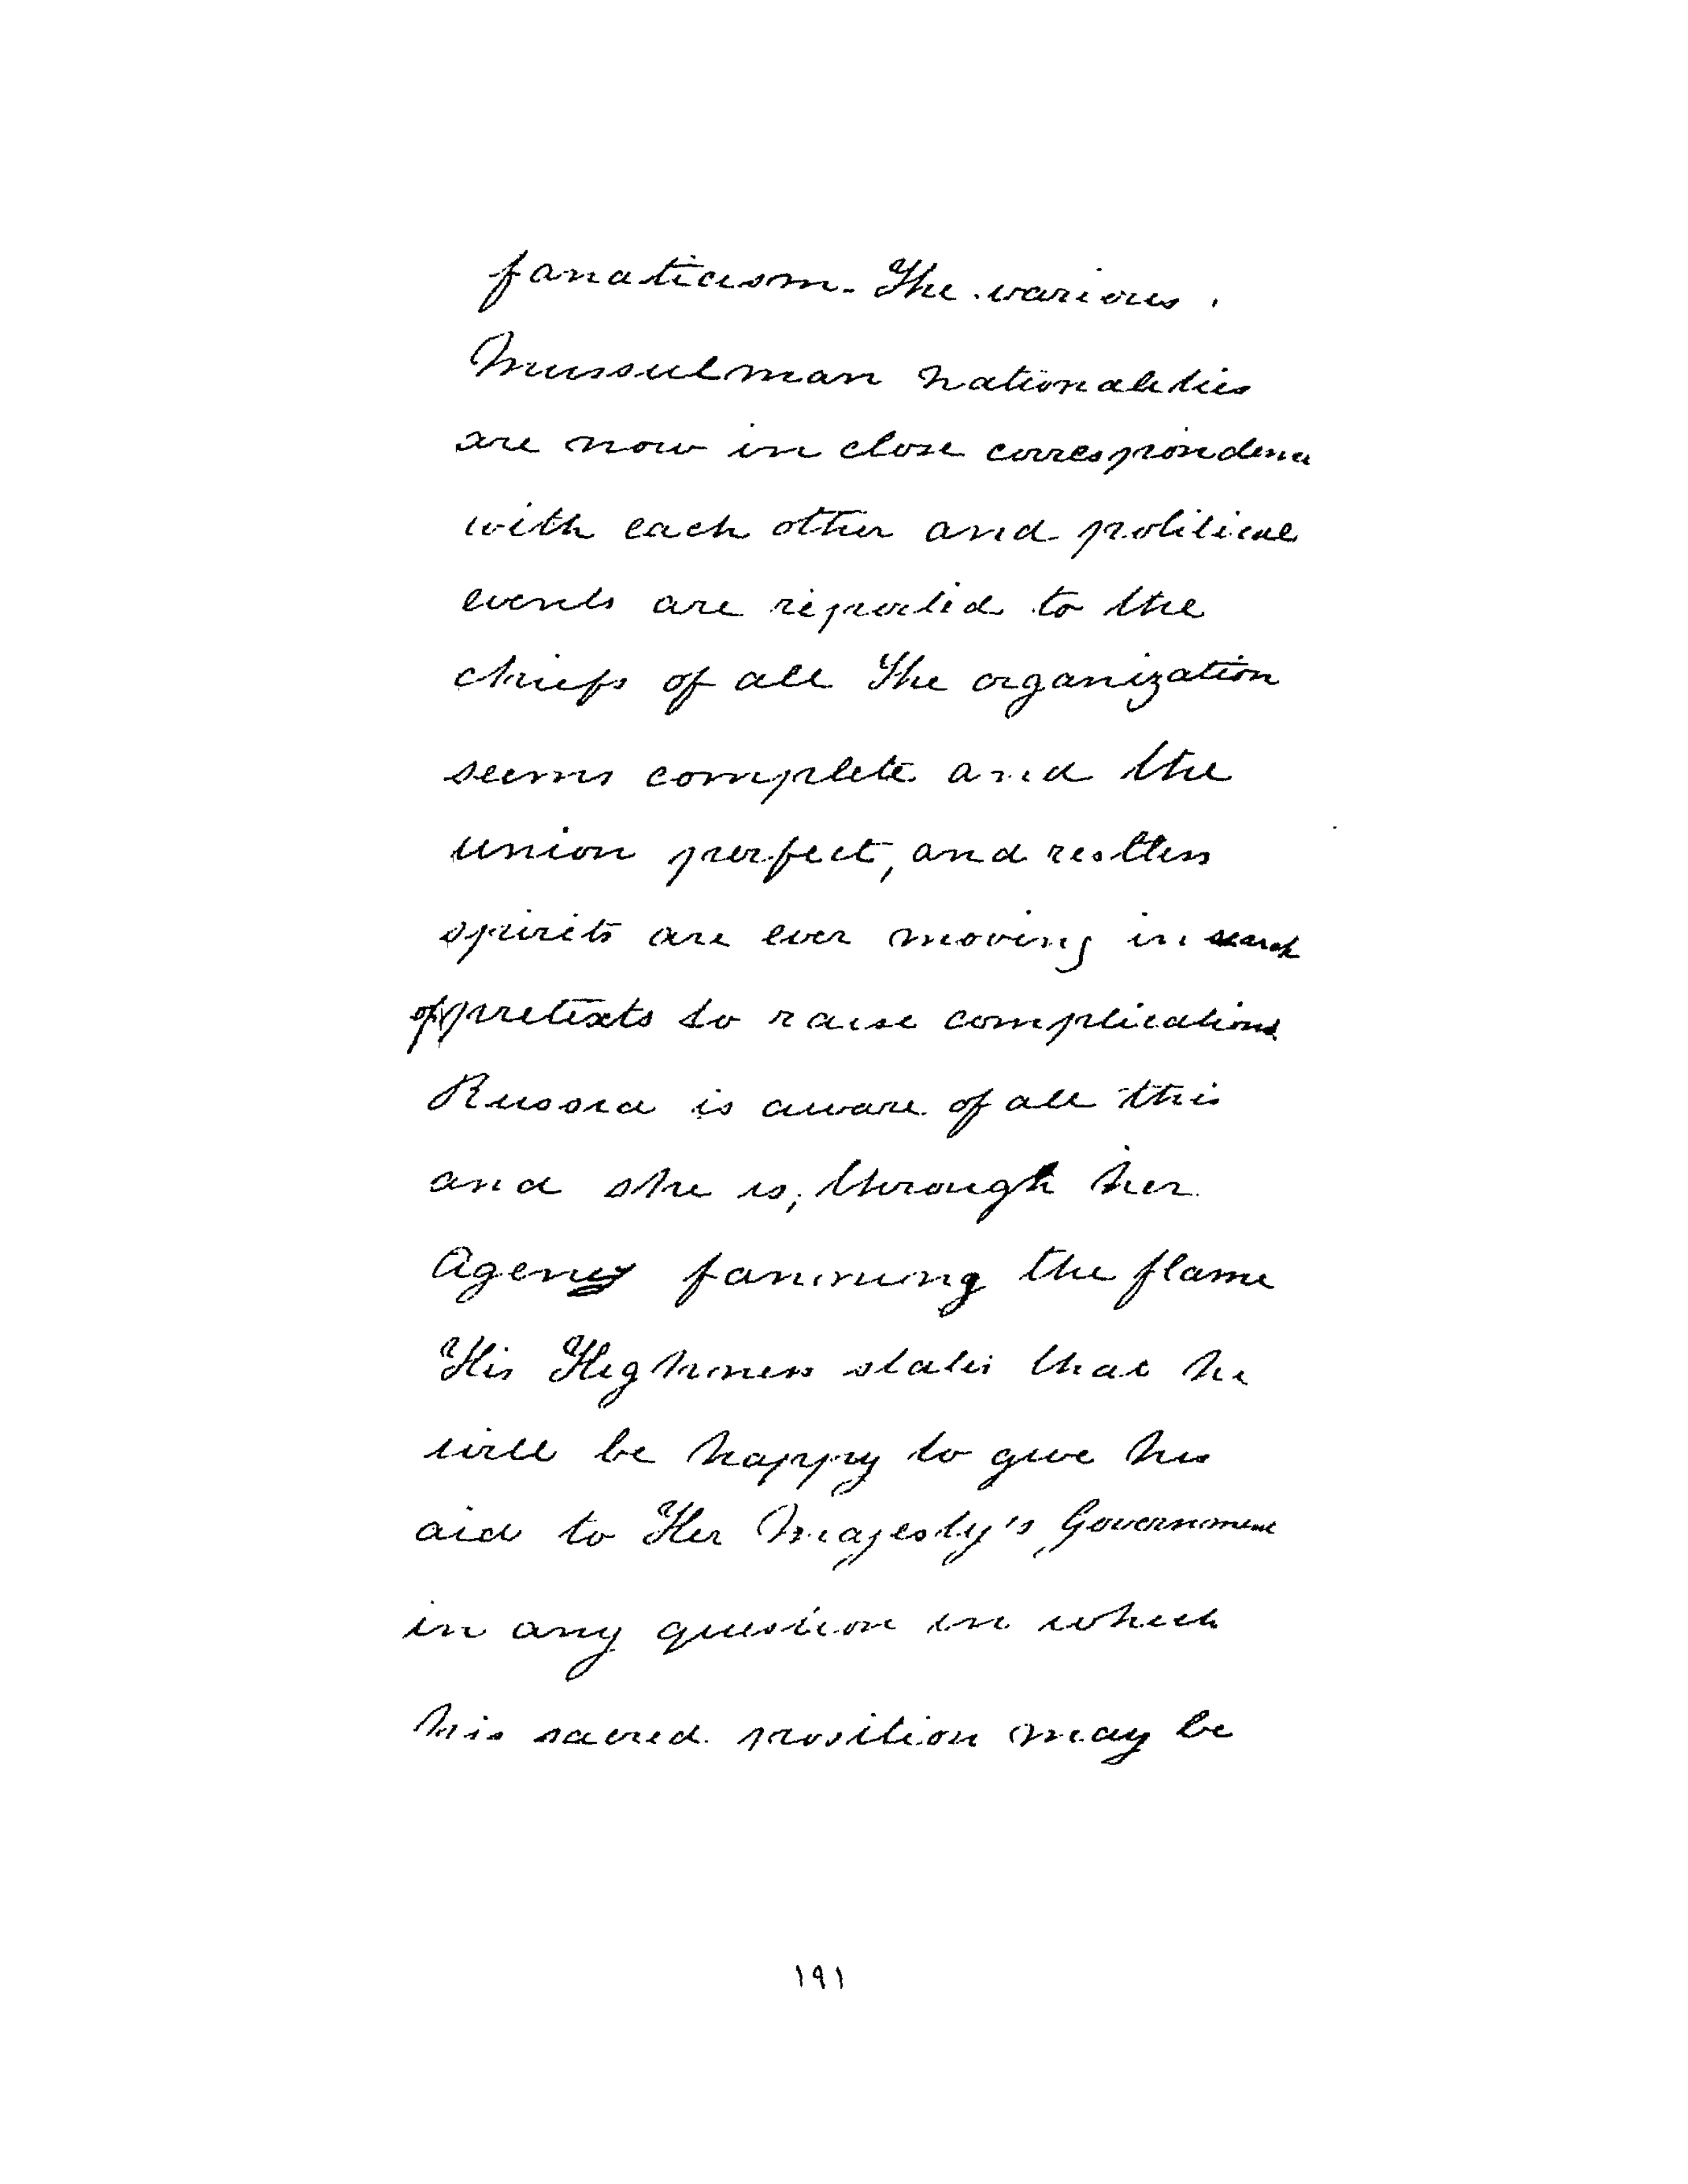 fanaticism. The various
Mussulman nationalities
are now in close correspondence
with each other and political
events are reported to the
chiefs of all The organization
seems complete and the
union perfect, and restless
spirits are ever moving in search
of pretexts to raise complications
Russia is aware of all this
and she is, through her
Agency fanning the flame
His Highness states that he
will be happy to give his
aid to Her Majesty's Government
in any question in which
his sacred position may be
١٩١